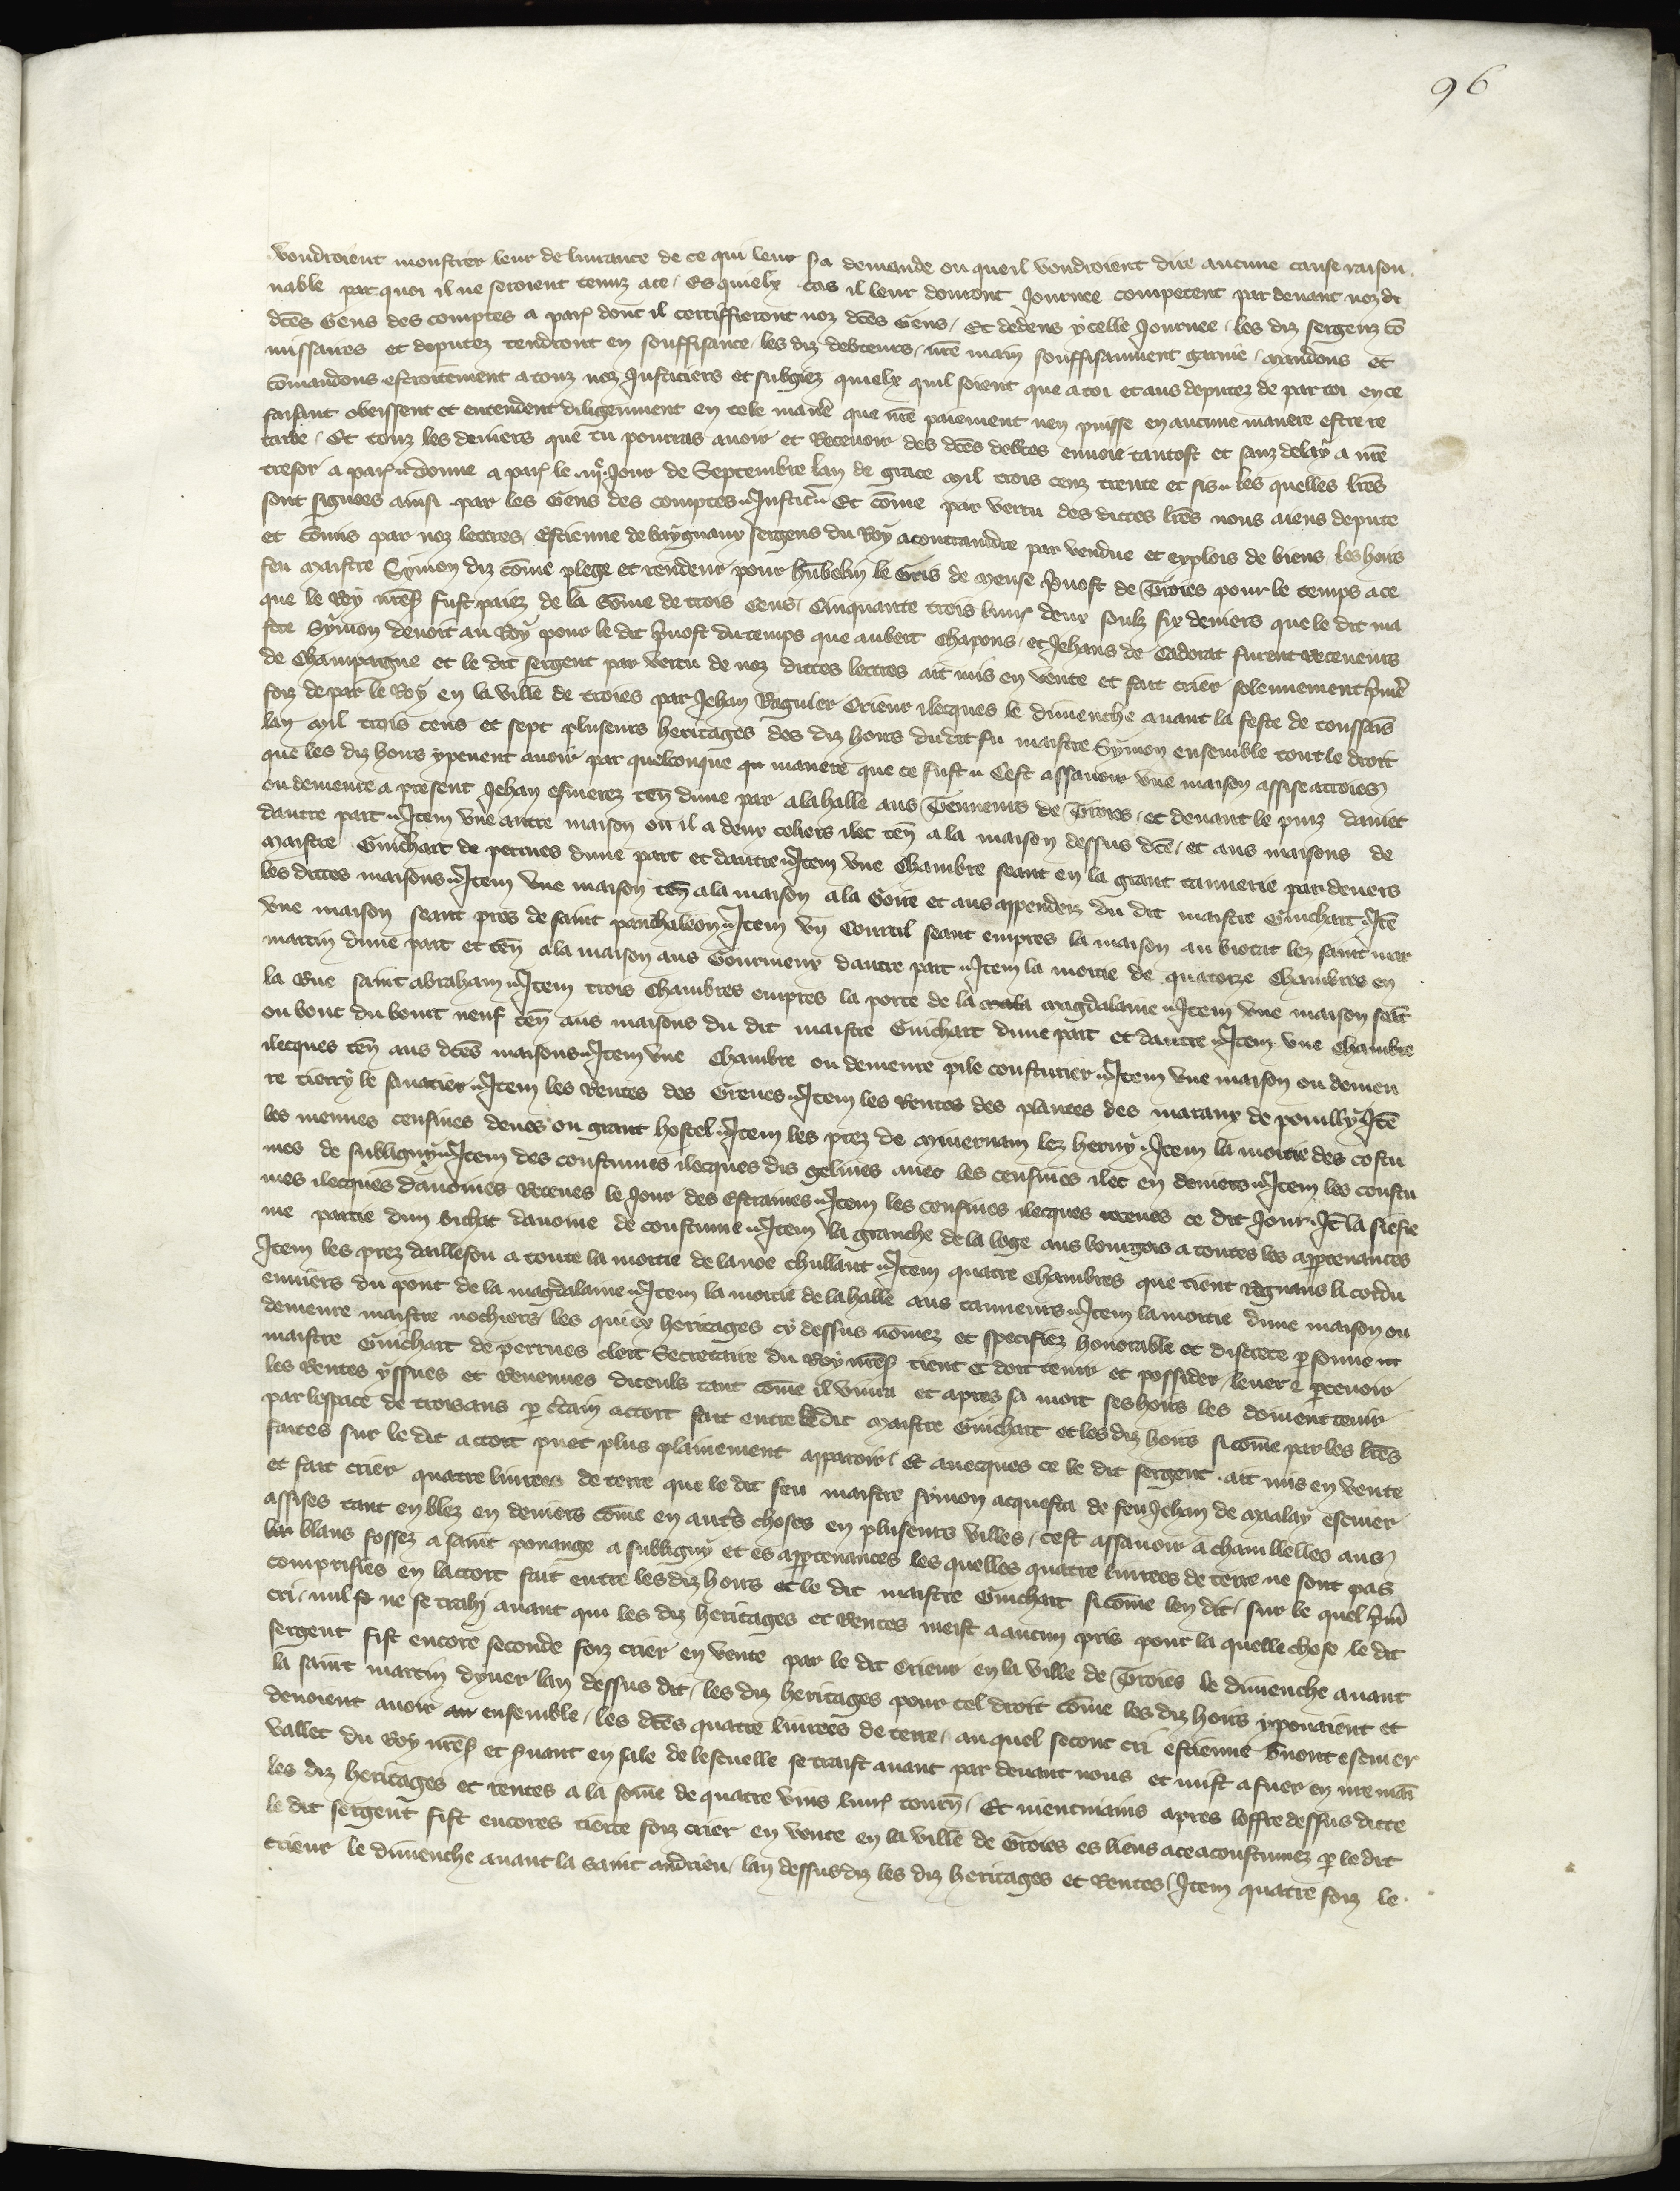 96
voudroient monstrer leur delivrance de ce qui leur sa demande ou queil voudroient dire aucune cause raison
nable par quoi il ne seroient tenuz a ce / Es quielx cas il leur donront Journee competent par devant noz dt
dces Gens des comptes a par dont il certiffieront noz dces Gens / Et dedens ycelle Journee les diz sergenz co
missaires et deputez tendront en souffisance les diz debteurs / nre main souffisaument garnie / Mandons et
comandons estroitement a touz noz Justiciers et subgiez quielx quil soient que a toi et aus deputez de par toi en ce
faisant obeissent et entendent diligenment en tele maniere que nre paiement nen puisse en aucune maniere estre re
tarde / Et touz les deniers que tu pourras avoir et Recevoir des dces debtes envoie tantost et sanz delay a nre
tresor a par Donne a par le Jour de Septembre lan de grace mil trois cenz trente et sis les quelles lres
sont signees ainsi par les Gens des comptes Justic Et come par vertu des dictes lres nous aiens depute
et comis par noz lettres Estienne de bayguaux sergens du Roy a contraindre par vendue et explois de biens les hoirs
feu maistre Symon diz come plege et rendeur pour hubelin le Gris de Meuse prevost de Troies pour le temps a ce
que le Roy nres fust paiez de la some de trois cens / Cinquante trois livr deux soulz six deniers que le dit ma
stre Symon devoit au Roy pour le dit prevost du temps que aubert Chapons / et Jehans de Cadorat furent Receveurs
de Champaigne et le dit sergent par vertu de noz dictes lettres ait mis en vente et fait crier solennement prime
foiz de par le Roy en la ville de troies par Jehan Raguier Crieur ilecques le dimenche avant la feste de toussais
lan mil trois cens et sept plusieurs heritages des diz hoirs du dit fu maistre Symon ensemble tout le droit
que les diz hoirs y pevent avoir par quelconque qu maniere que ce fust Cest assavoir une maison assise a troies
ou demeure a present Jehan esmerez ten dune par a la halle aus Tenneurs de Troies / et devant le puiz daniet
dautre part Item une autre maison ou il a deux celiers ilec ten a la maison dessus dce / et aus maisons de
Maistre Guichart de perrues dune part et dautre Item une Chambre seant en la grant tannerie par devers
les dictes maisons Item une maison ten a la maison a la Goire et aus appendez du dit maistre Guichart Ite
une maison seant pres de saint panthaleon Item un Courtil seant empres la maison au biorat lez saint mar
martin dune part et ten a la maison aus Gourmeux dautre part Item la moitie de quatorze Chambres en
la Rue saint abraham Item trois Chambres empres la porte de la magdalaine Item une maison seat
ou bout du bourt neuf ten aus maisons du dit maistre Guichart dune part et dautre Item une Chambre
ilecques ten aus dces maisons Item une Chambre ou demeure pile cousturier Item une maison ou demeu
re tierry le savatier Item les Rentes des Greves Item les Rentes des plantes des maraux de pouilly Ite
les menues censives deues ou grant hostel Item les prez de Minernam lez hervy Item la moitie des costu
mes de subligny Item des coustumes ilecques dis gelines avec les censives ilec en deniers Item les coustu
mes ilecques davoines Receues le Jour des Estraines Item les censives ilecques receues ce dit Jour It la siesie
me partie dun bichat davoine de coustume Item la granche de la loge aus bourgois a toutes les appartenances
Item les prez dailleson a toute la moitie de la noe chullaut Item quatre Chambres que tient Regnaus li cordu
enniers du pont de la magdalaine Item la moitie de la halle aus tanneurs Item la moitie dune maison ou
demeure maistre nochiers les quiex heritages cy dessus nomez et specifiez honorable et discrete personne nt
maistre Guichart de perrues clert Secretaire du Roy nres tient et doit tenir et possider / lever et percevoir
les Rentes yssues et Revenues diceuls tant come il vivra et apres sa mort ses hoirs les doivent tenir
par lespace de trois ans p certain accort fait entre le dit maistre Guichart et les diz hoirs si come par les lres
faites sur le dit accort puet plus plainement apparoir Et avecques ce le dit sergent ait mis en vente
et fait crier quatre livrees de terre que le dit feu maistre symon acquesta de feu Jehan de malay escuier
assises tant en blez en deniers come en autres choses en plusieurs villes / cest assavoir a chamllelles aus
blans fossez a saint ponange a subligny et es appartenances les quelles quatre livrees de terre ne sont pas
comprisies en laccort fait entre les diz hoirs et le dit maistre Guichart si come len dit / sur le quel prim
cri nul ne se trahi avant qui les diz heritages et Rentes meist a aucun pris pour la quelle chose le dit
sergent fist encore seconde foiz crier en vente par le dit Crieur en la ville de Troies le dimenche avant
la saint martin dyver lan dessus dit / les diz heritages pour tel droit come les diz hoirs y povaient et
devoient avoir ensemble / les dces quatre livrees de terre / au quel secont cri estienne bruont escuier
vallet du Roy nres et servant en sale de lescuelle se traist avant par devant nous et mist a fuer en nre mai
les diz heritages et rentes a la some de quatre vins livr tourn / Et nientmains apres loffre dessus dicte
le dit sergent fist encores tierce foiz crier en vente en la ville de Troies es lieus a ce acoustumez p le dit
crieur le dimenche avant la saint andrieu / lan dessus diz les diz heritages et Rentes / Item quatre foiz le